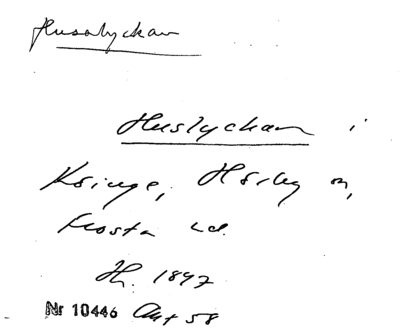 Husalyckan
Huslyckan i
Köinge, Hörby sn,
Frosta hd.
Nr 10446 Akt 58